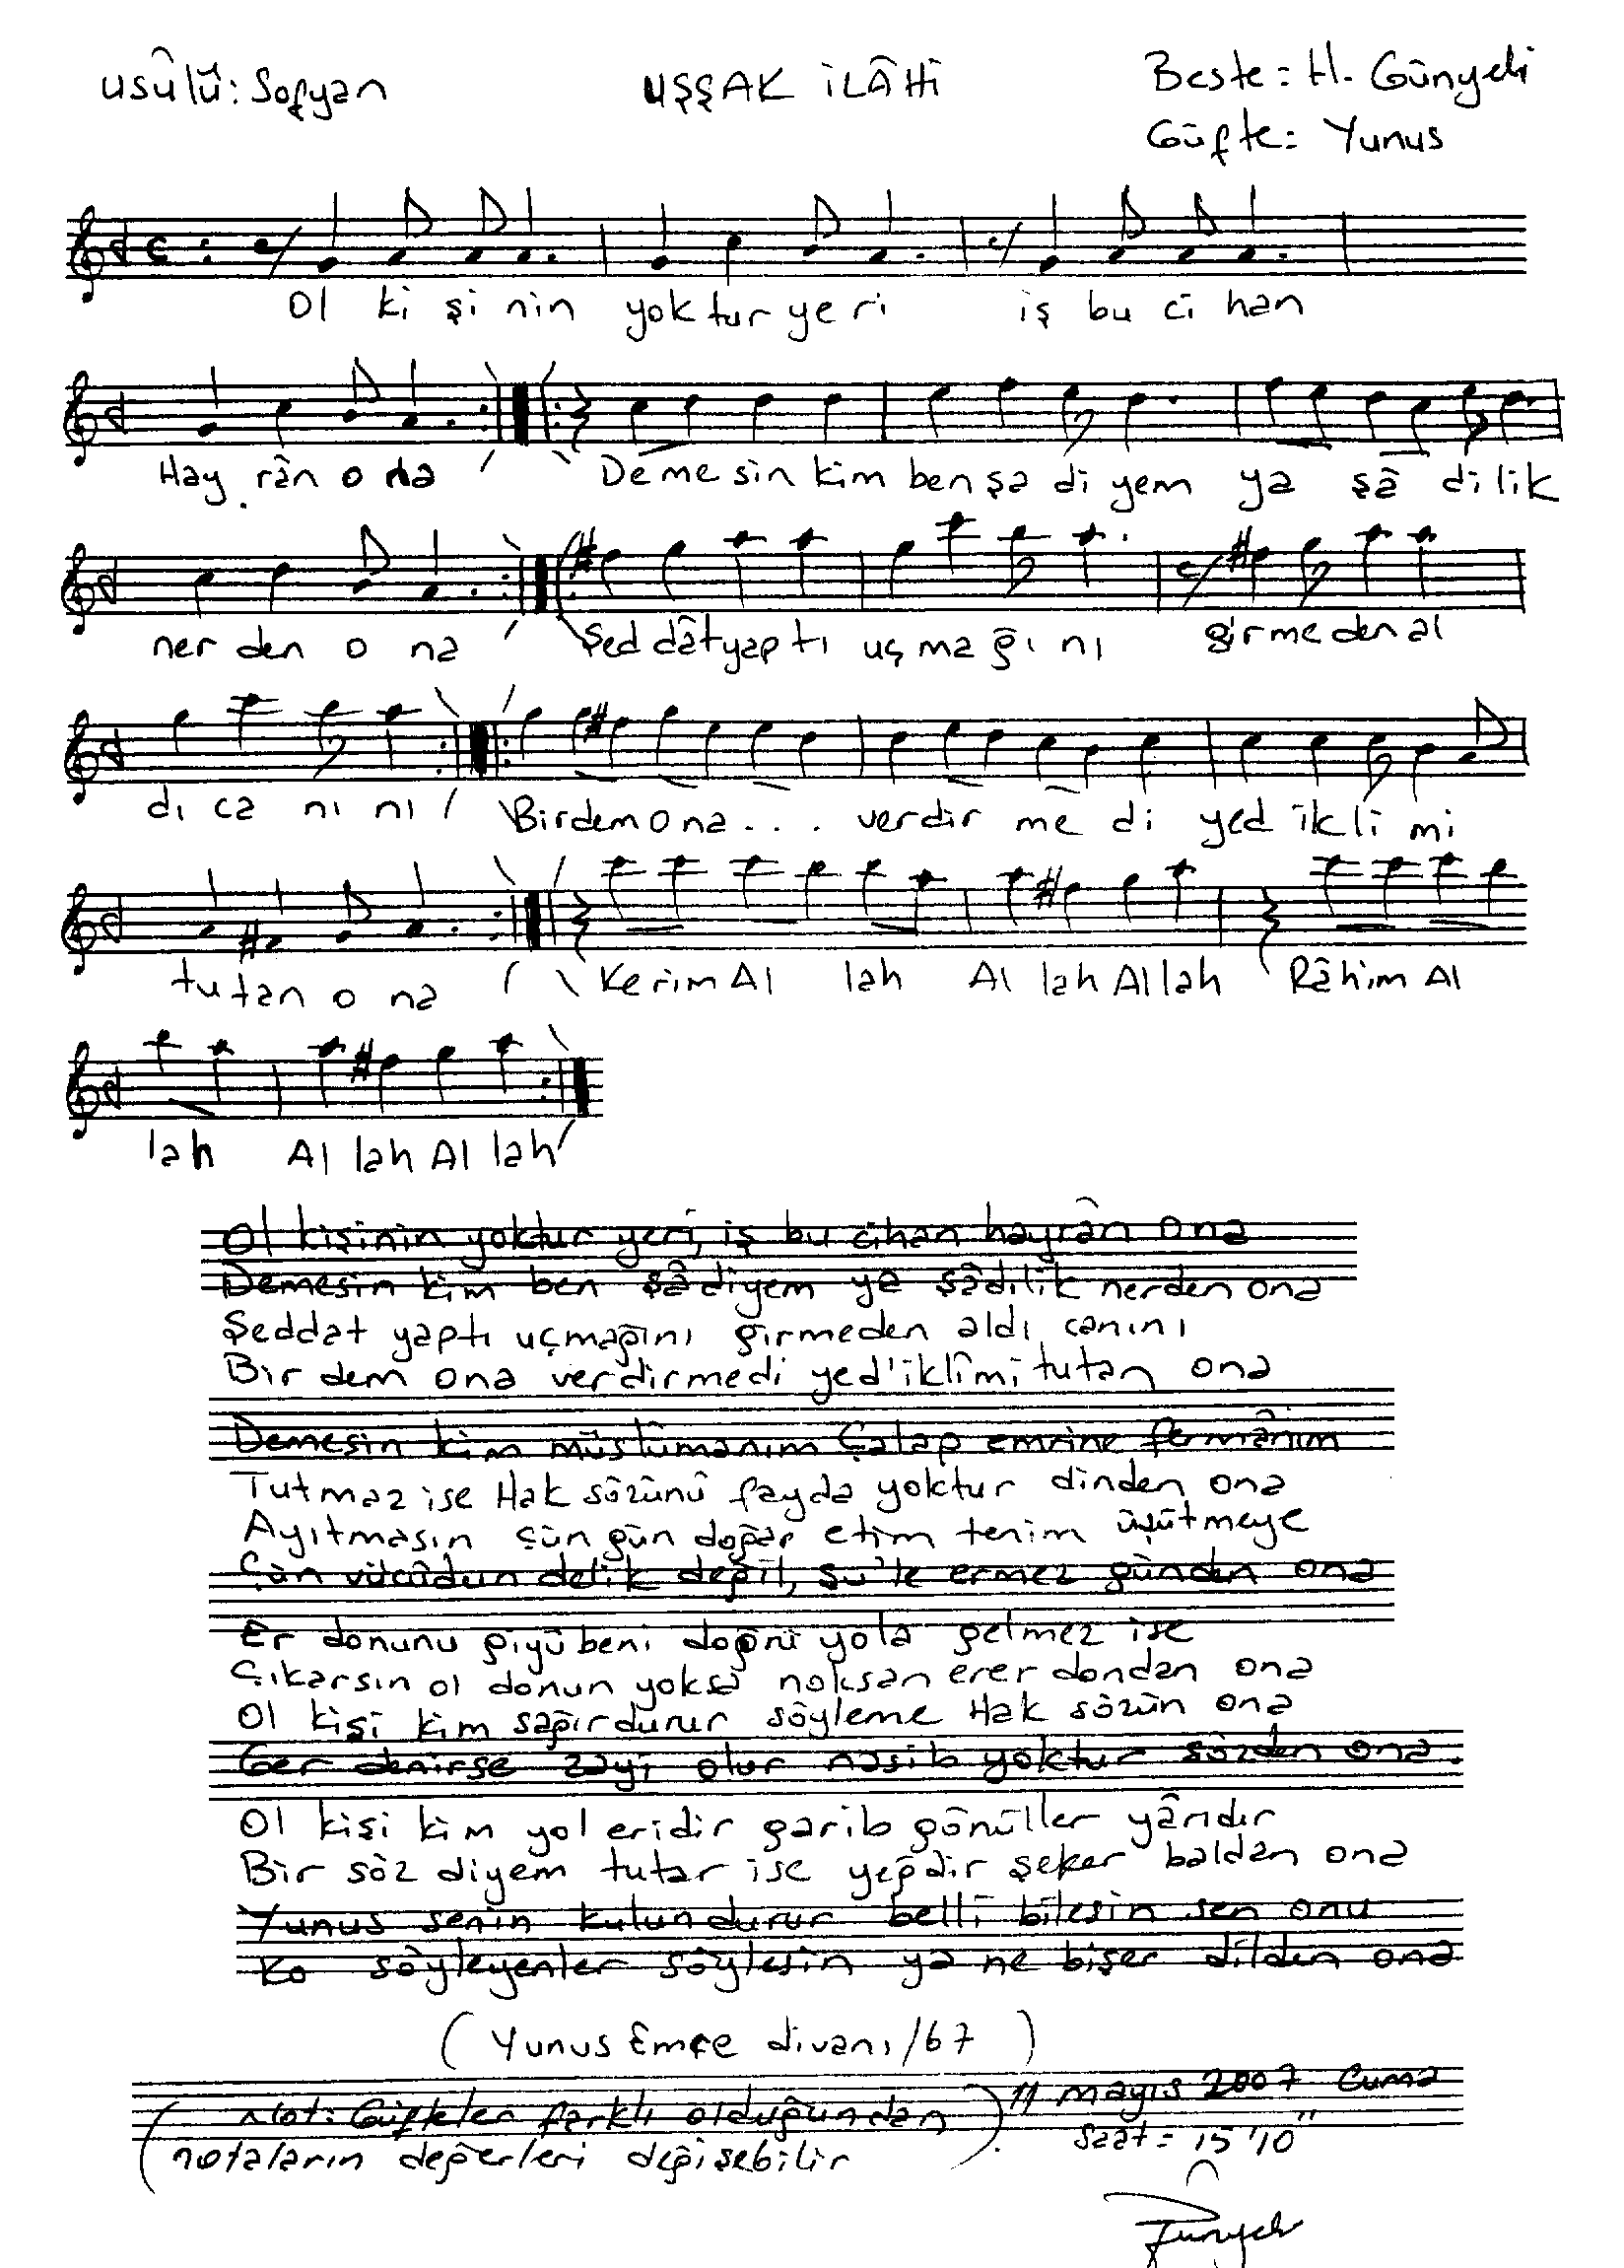 usûlü: Sofyan
UŞŞAK İLÂHİ
Beste = H. Günyeli
Güfte = Yunus
Ol ki şi nin yok tur ye ri iş bu ci han
Hay rân o na Demesin kim ben şa di yem ya şâ di lik
ner den o na Şed dât yap tı uç ma ğı nı girmeden al
dı ca nı nı Birdem ona... verdir me di yed ikli mi
tu tan o na Kerim Al lah Al lah Al lah Râhim Al
lah Al lah Al lah
Ol kişinin yoktur yeri, iş bu cihan hayrân ona
Demesin kim ben şâdiyem ya şâdılık nerden ona
Şeddat yaptı uçmağını girmeden aldı canını
Bir dem ona verdirmedi yed'iklîmi tutan ona
Demesin kim müslümanım Çalap emrine fermânım
Tutmaz ise Hak sözünü fayda yoktur dinden ona
Ayıtmasın çün gün doğar etim tenim üşütmeye
Çün vücûdun delik değil, şu'le ermez günden ona
Er donunu giyübeni doğru yola gelmez ise
Çıkarsın ol donun yoksa noksan erer dondan ona
Ol kişi kim sağırdurur söyleme Hak sözün ona
Ger denirse zayi olur nasib yoktur sözden ona.
Ol kişi kim yol eridir garib gönüller yârıdır
Bir söz diyem tutar ise yeğdir şeker baldan ona
Yunus senin kulundurur belli bilesin sen onu
Ko söyleyenler söylesin ya ne bişer dilden ona
(Yunus Emre divanı/67)
(Not: Güfteler farklı olduğundan
notaların değerleri değişebilir).
11 mayıs 2007 Cuma
Saat = 15'10"
Günyeli